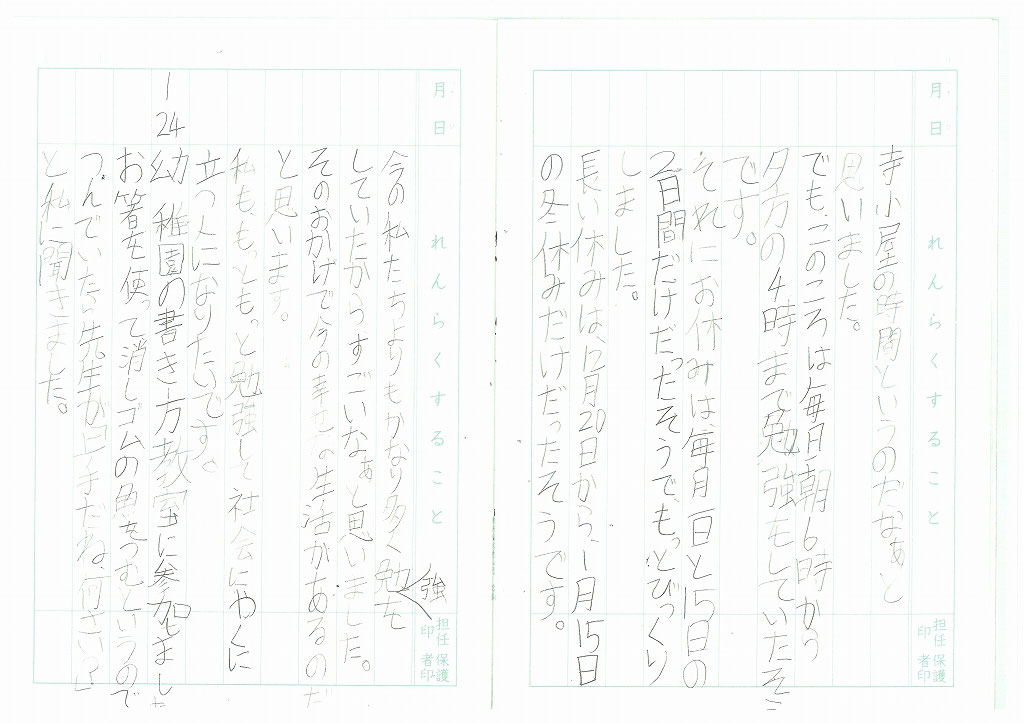 月 日
れんらくすること
担任印
保護者印
寺小屋の時間というのだなぁと
思いました。
でも、このころは毎日朝6時から
夕方の4時まで勉強をしていたそう
です。
それにお休みは、毎月一日と15日の
2日間だけだったそうで、もっとびっくり
しました。
長い休みは、12月20日から、1月15日
の冬休みだけだったそうです。
月 日
れんらくすること
担任印
保護者印
今の私たちよりもかなり多く勉強を
していたから、すごいなぁと思いました。
そのおかげで今の幸せな生活があるのだ
と思います。
私も、もっともっと勉強して社会にやくに
立つ人になりたいです。
1 24
幼稚園の書き方教室に参加しました
お箸を使って消しゴムの魚をつむというので
つんでいたら先生が「上手だね、何さい?」
と私に聞きました。